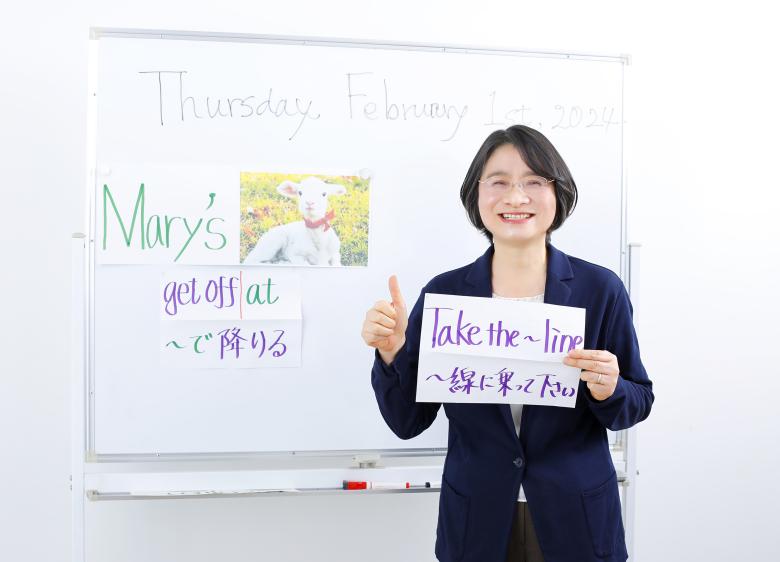 Thursday, February 1st, 2024
Mary's
get off at
～で降りる
Take the ~ line
～線に乗って下さい